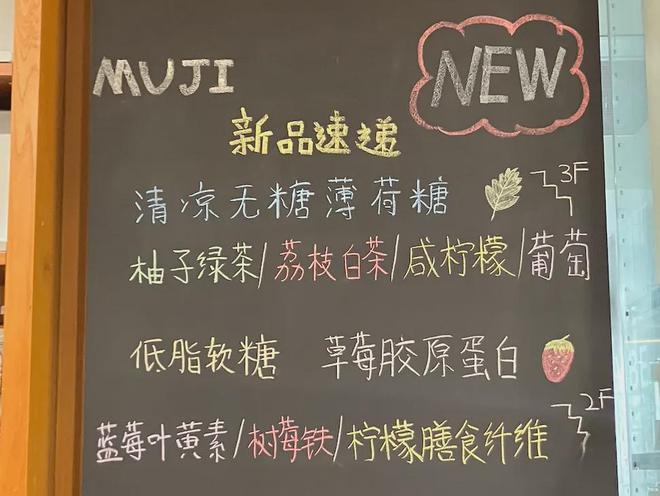 MUJI NEW
新品速递
清凉无糖薄荷糖 3F
柚子绿茶/荔枝白茶/咸柠檬/葡萄
低脂软糖 草莓胶原蛋白
2F
蓝莓叶黄素/树莓铁/柠檬膳食纤维